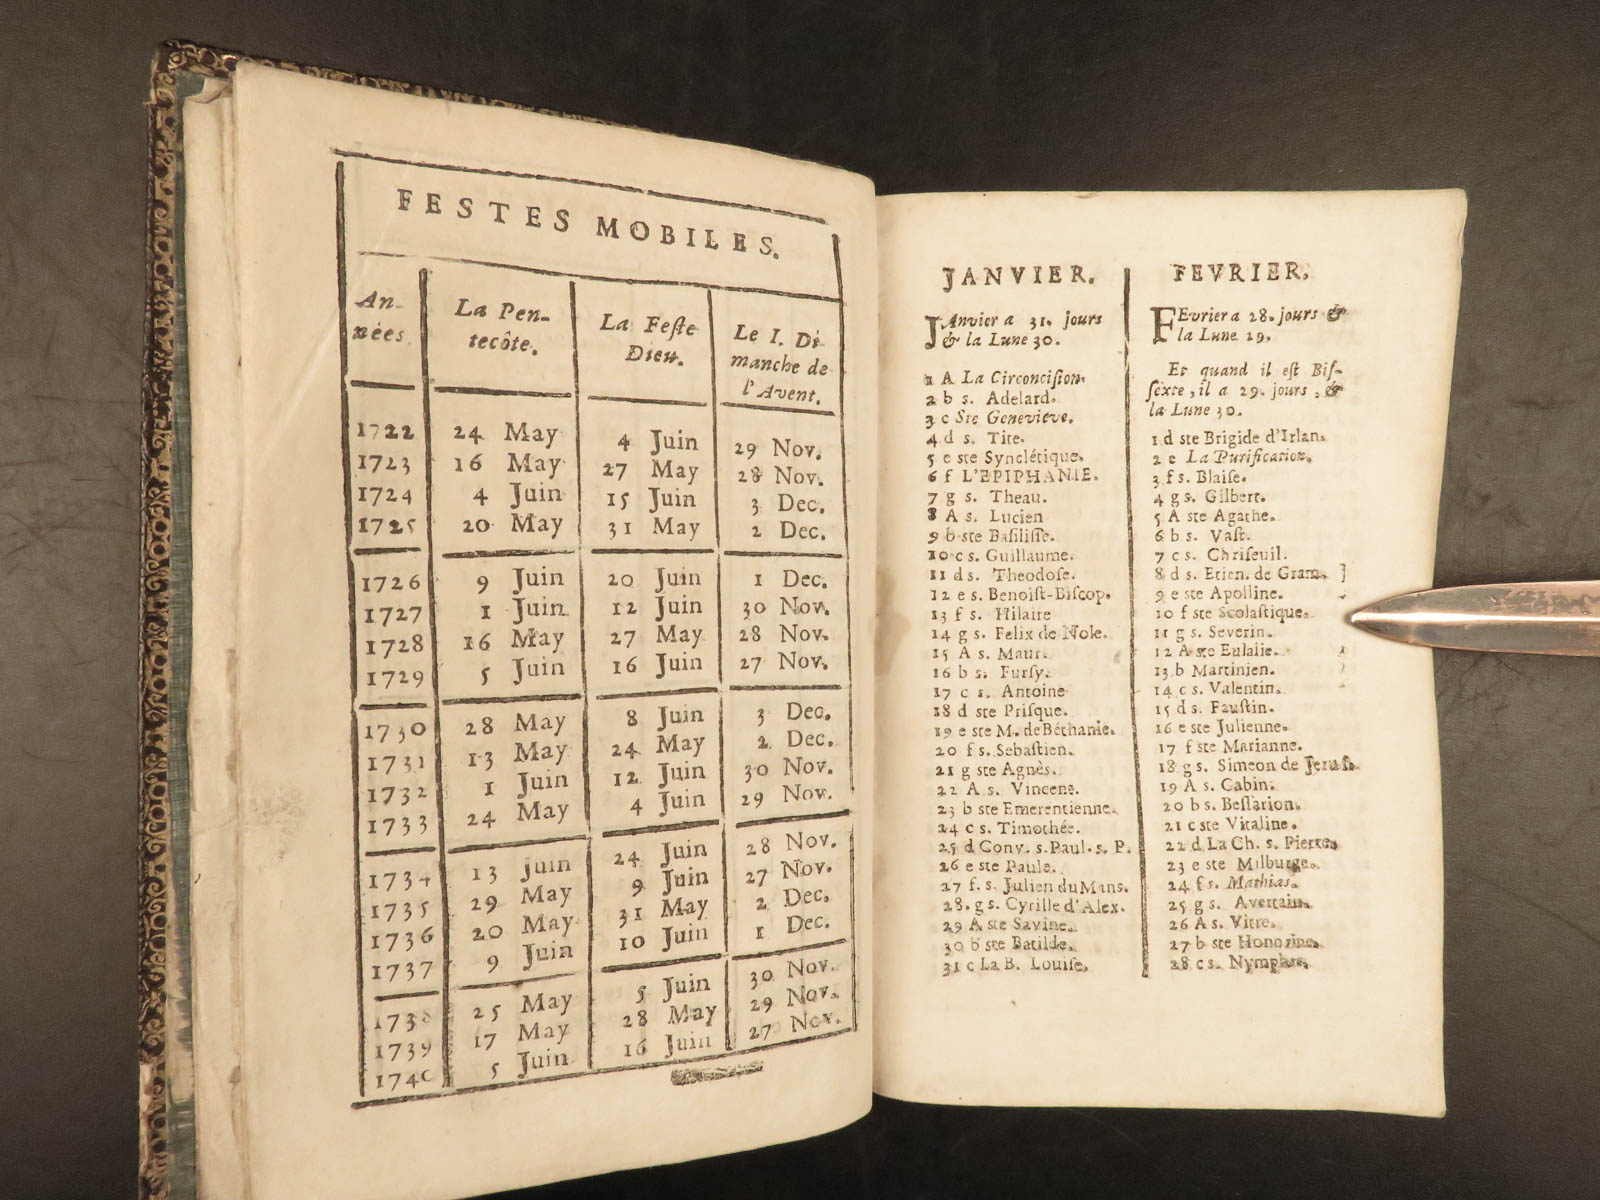 FESTES MOBILES.
An-
nées.
La Pen-
tecôte.
La Feste
Dieu.
Le I. Di
manche de
l'Avent.
1722 24 May 4 Juin 29 Nov.
1723 16 May 27 May 28 Nov.
1724 4 Juin 15 Juin 3 Dec.
1725 20 May 31 May 2 Dec.
1726 9 Juin 20 Juin 1 Dec.
1727 1 Juin 12 Juin 30 Nov.
1728 16 May 27 May 28 Nov.
1729 5 Juin 16 Juin 27 Nov.
1730 28 May 8 Juin 3 Dec.
1731 13 May 24 May 2 Dec.
1732 1 Juin 12 Juin 30 Nov.
1733 24 May 4 Juin 29 Nov.
1734 13 Juin 24 Juin 28 Nov.
1735 29 May 9 Juin 27 Nov.
1736 20 May 31 May 2 Dec.
1737 9 Juin 10 Juin 1 Dec.
1738 25 May 5 Juin 30 Nov.
1739 17 May 28 May 29 Nov.
1740 5 Juin 16 Juin 27 Nov.
JANVIER.
JAnvier a 31. jours
& la Lune 30.
1 A La Circoncision.
2 b s. Adelard.
3 c Ste Geneviève.
4 d s. Tite.
5 e ste Synclétique.
6 f L'EPIPHANIE.
7 g s. Theau.
8 A s. Lucien
9 b ste Basilisse.
10 c s. Guillaume.
11 d s. Theodose.
12 e s. Benoist-Biscop.
13 f s. Hilaire
14 g s. Felix de Nole.
15 A s. Maur.
16 b s. Fursy.
17 c s. Antoine
18 d ste Prisque.
19 e ste M. de Béthanie.
20 f s. Sebastien.
21 g ste Agnès.
22 A s. Vincent.
23 b ste Emerentienne.
24 c s. Timothée.
25 d Conv. s. Paul. s. P.
26 e ste Paule.
27 f. s. Julien du Mans.
28. g s. Cyrille d'Alex.
29 A ste Savine.
30 b ste Batilde.
31 c La B. Louise.
FEVRIER.
FEvrier a 28. jours &
la Lune 29.
Et quand il est Bis-
sexte, il a 29. jours, &
la Lune 30.
1 d ste Brigide d'Irlan.
2 e La Purification.
3 f s. Blaise.
4 g s. Gilbert.
5 A ste Agathe.
6 b s. Vast.
7 c s. Chriseuil.
8 d s. Etien. de Gram.
9 e ste Apolline.
10 f ste Scolastique.
11 g s. Severin.
12 A ste Eulalie.
13 b Martinien.
14 c s. Valentin.
15 d s. Faustin.
16 e ste Julienne.
17 f ste Marianne.
18 g s. Simeon de Jerus.
19 A s. Cabin.
20 b s. Bessarion.
21 c ste Vitaline.
22 d La Ch. s. Pierre.
23 e ste Milburge.
24 f s. Mathias.
25 g s. Avertain.
26 A s. Vitre.
27 b ste Honorine.
28 c s. Nymphas.